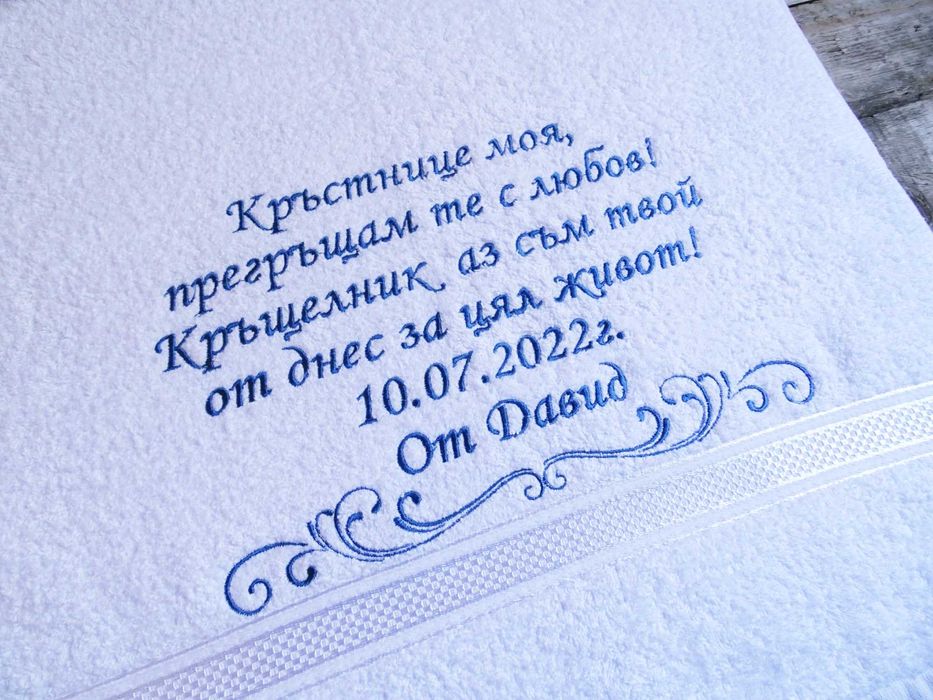 Кръстнице моя,
прегръщам те с любов!
Кръщелник аз съм твой
от днес за цял живот!
10.07.2022г.
От Давид